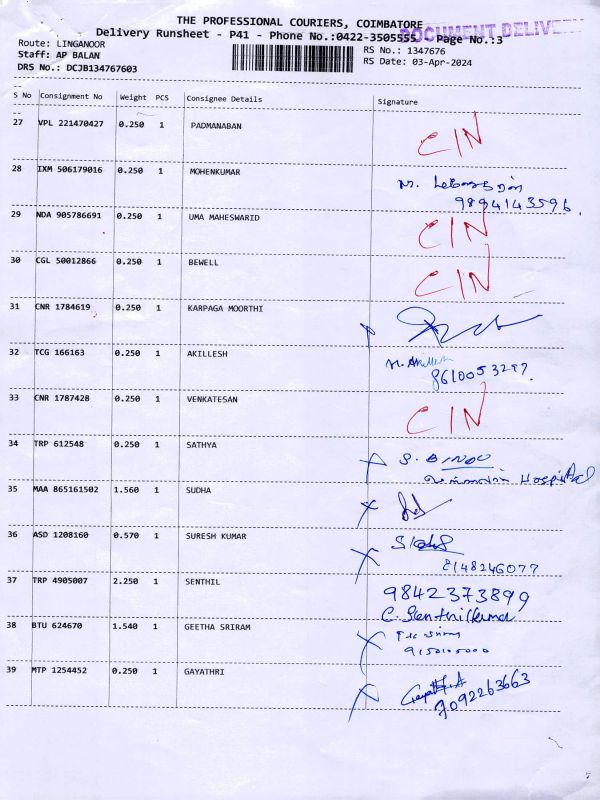 THE PROFESSIONAL COURIERS, COIMBATORE
DOCUMENT DELIVE
Delivery Runsheet - P41 - Phone No.:0422-3505555 Page No.:3
Route: LINGANOOR
RS No.: 1347676
Staff: AP BALAN
RS Date: 03-Apr-2024
DRS No.: DCJB134767603
S No Consignment No Weight PCS Consignee Details Signature
27 VPL 221470427 0.250 1 PADMANABAN CIN
28 IXM 506179016 0.250 1 MOHENKUMAR M.
9894143596.
29 NDA 905786691 0.250 1 UMA MAHESWARID CIN
30 CGL 50012866 0.250 1 BEWELL CIN
31 CNR 1784619 0.250 1 KARPAGA MOORTHI
32 TCG 166163 0.250 1 AKILLESH M. Akillesh
8610053297.
33 CNR 1787428 0.250 1 VENKATESAN CIN
34 TRP 612548 0.250 1 SATHYA S. BINDU
Hospital
35 MAA 865161502 1.560 1 SUDHA
36 ASD 1208160 0.570 1 SURESH KUMAR
8148246077
37 TRP 4905007 2.250 1 SENTHIL 9842373899
C. Senthilkumar
38 BTU 624670 1.540 1 GEETHA SRIRAM
9150105000
39 MTP 1254452 0.250 1 GAYATHRI Gayathri.A
7092263663